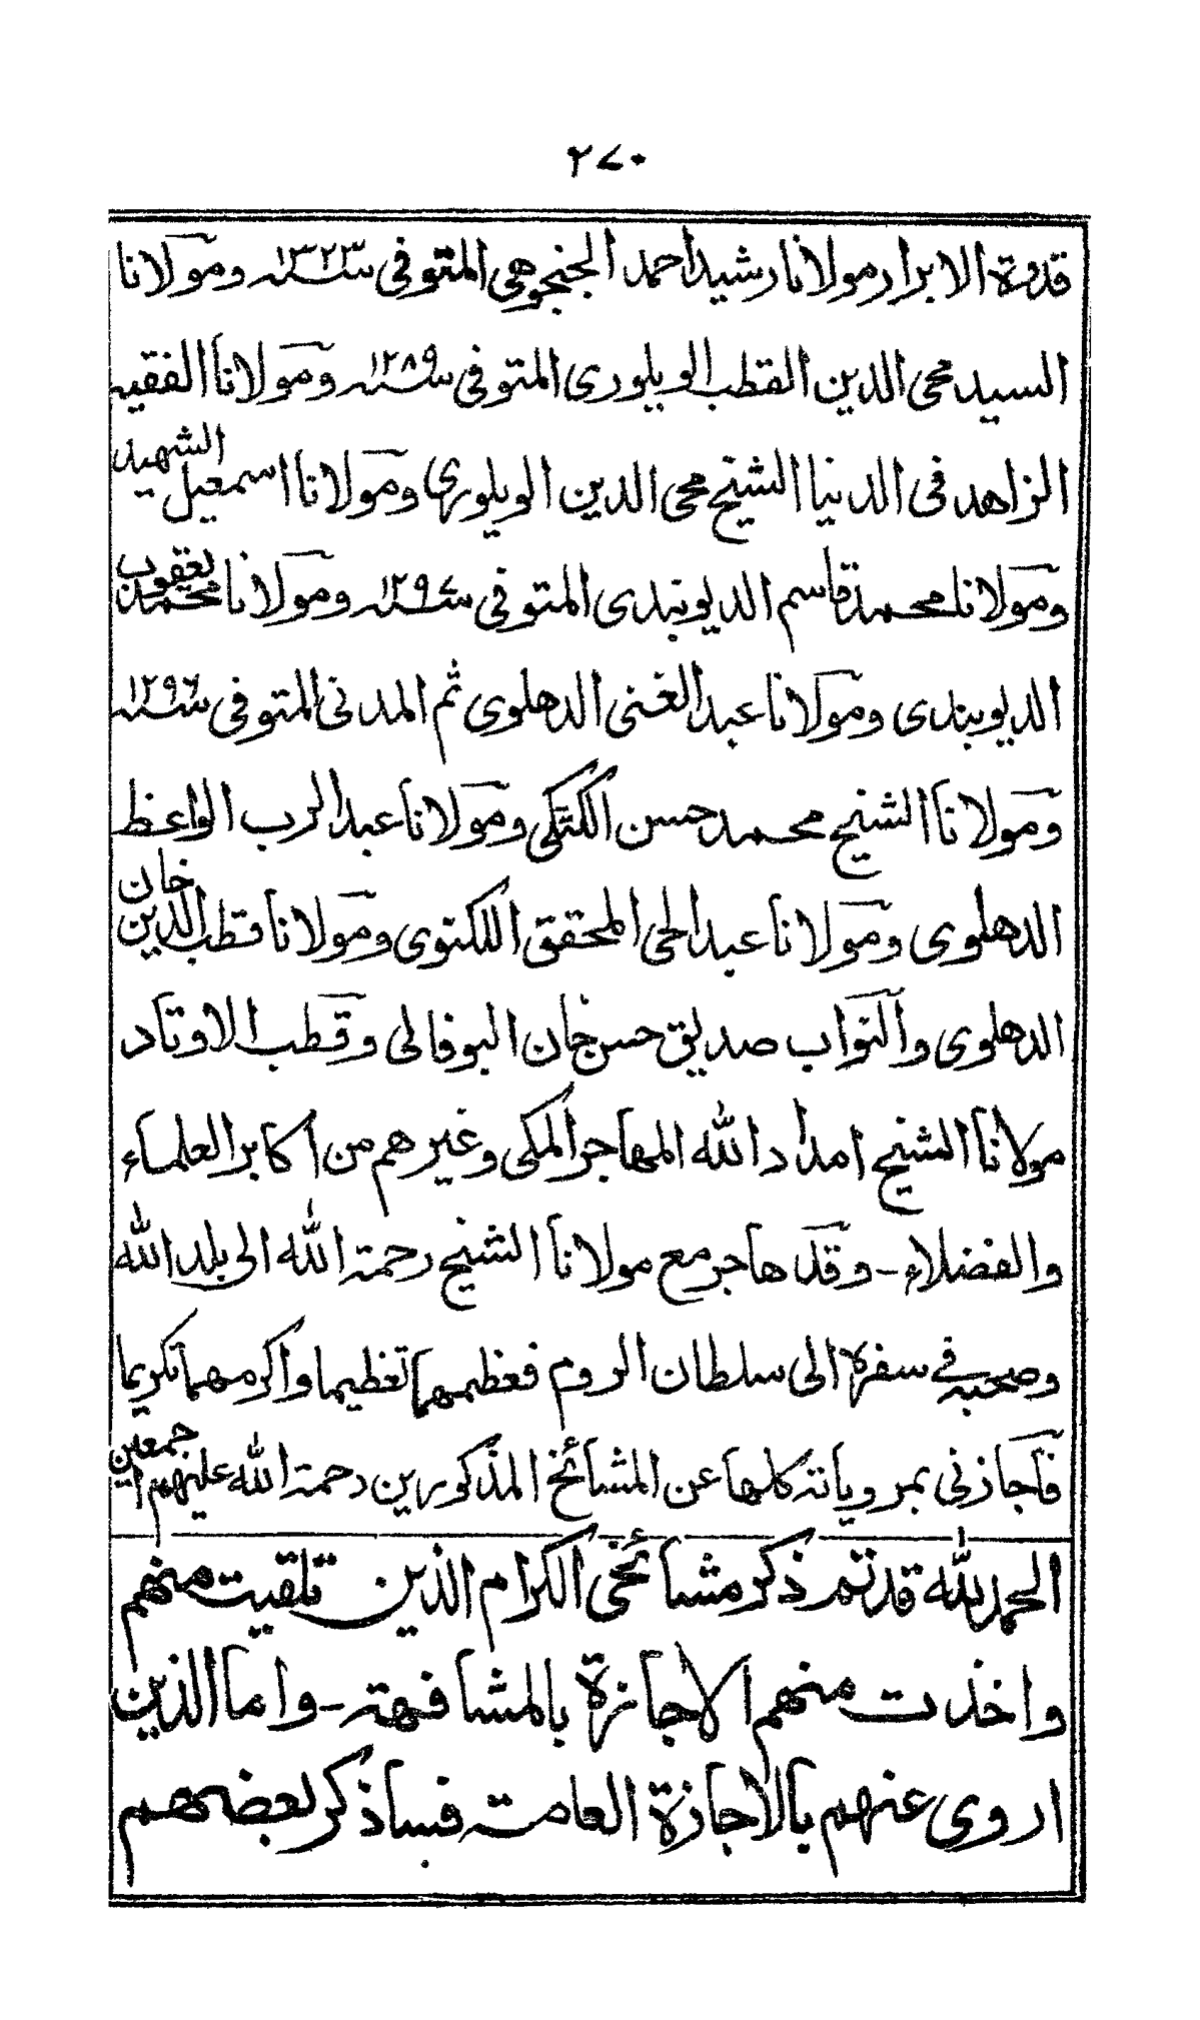 ٢٧٠
قدوة الابرار مولانا رشيد احمد الجنجوهى المتوفى سنة ١٣٢٣ ومولانا
السيد محى الدين القطب الويلورى المتوفى سنة ١٢٨٩ ومولانا الفقيه
الزاهد فى الدنيا الشيخ محى الدين الويلورى ومولانا اسمعيل الشهيد
ومولانا محمد قاسم الديوبندى المتوفى سنة ١٢٩٧ ومولانا محمد يعقوب
الديوبندى ومولانا عبد الغنى الدهلوى ثم المدنى المتوفى سنة ١٢٩٦
ومولانا الشيخ محمد حسن الكتكى ومولانا عبد الرب الواعظ
الدهلوى ومولانا عبد الحى المحقق اللكنوى ومولانا قطب الدين خان
الدهلوى والنواب صديق حسن خان البوفالى وقطب الاوتاد
مولانا الشيخ امداد الله المهاجر المكى وغيرهم من اكابر العلماء
والفضلاء - وقد هاجر مع مولانا الشيخ رحمة الله الى بلد الله
وصحبه في سفره الى سلطان الروم فعظمهما تعظيما واكرمهما تكريما
فاجازنى بمروياته كلها عن المشائخ المذكورين رحمة الله عليهم اجمعين
الحمد لله قد تم ذكر مشائخى الكرام الذين تلقيت منهم
واخذت منهم الاجازة بالمشافهة - واما الذين
اروى عنهم بالاجازة العامة فساذكر بعضهم